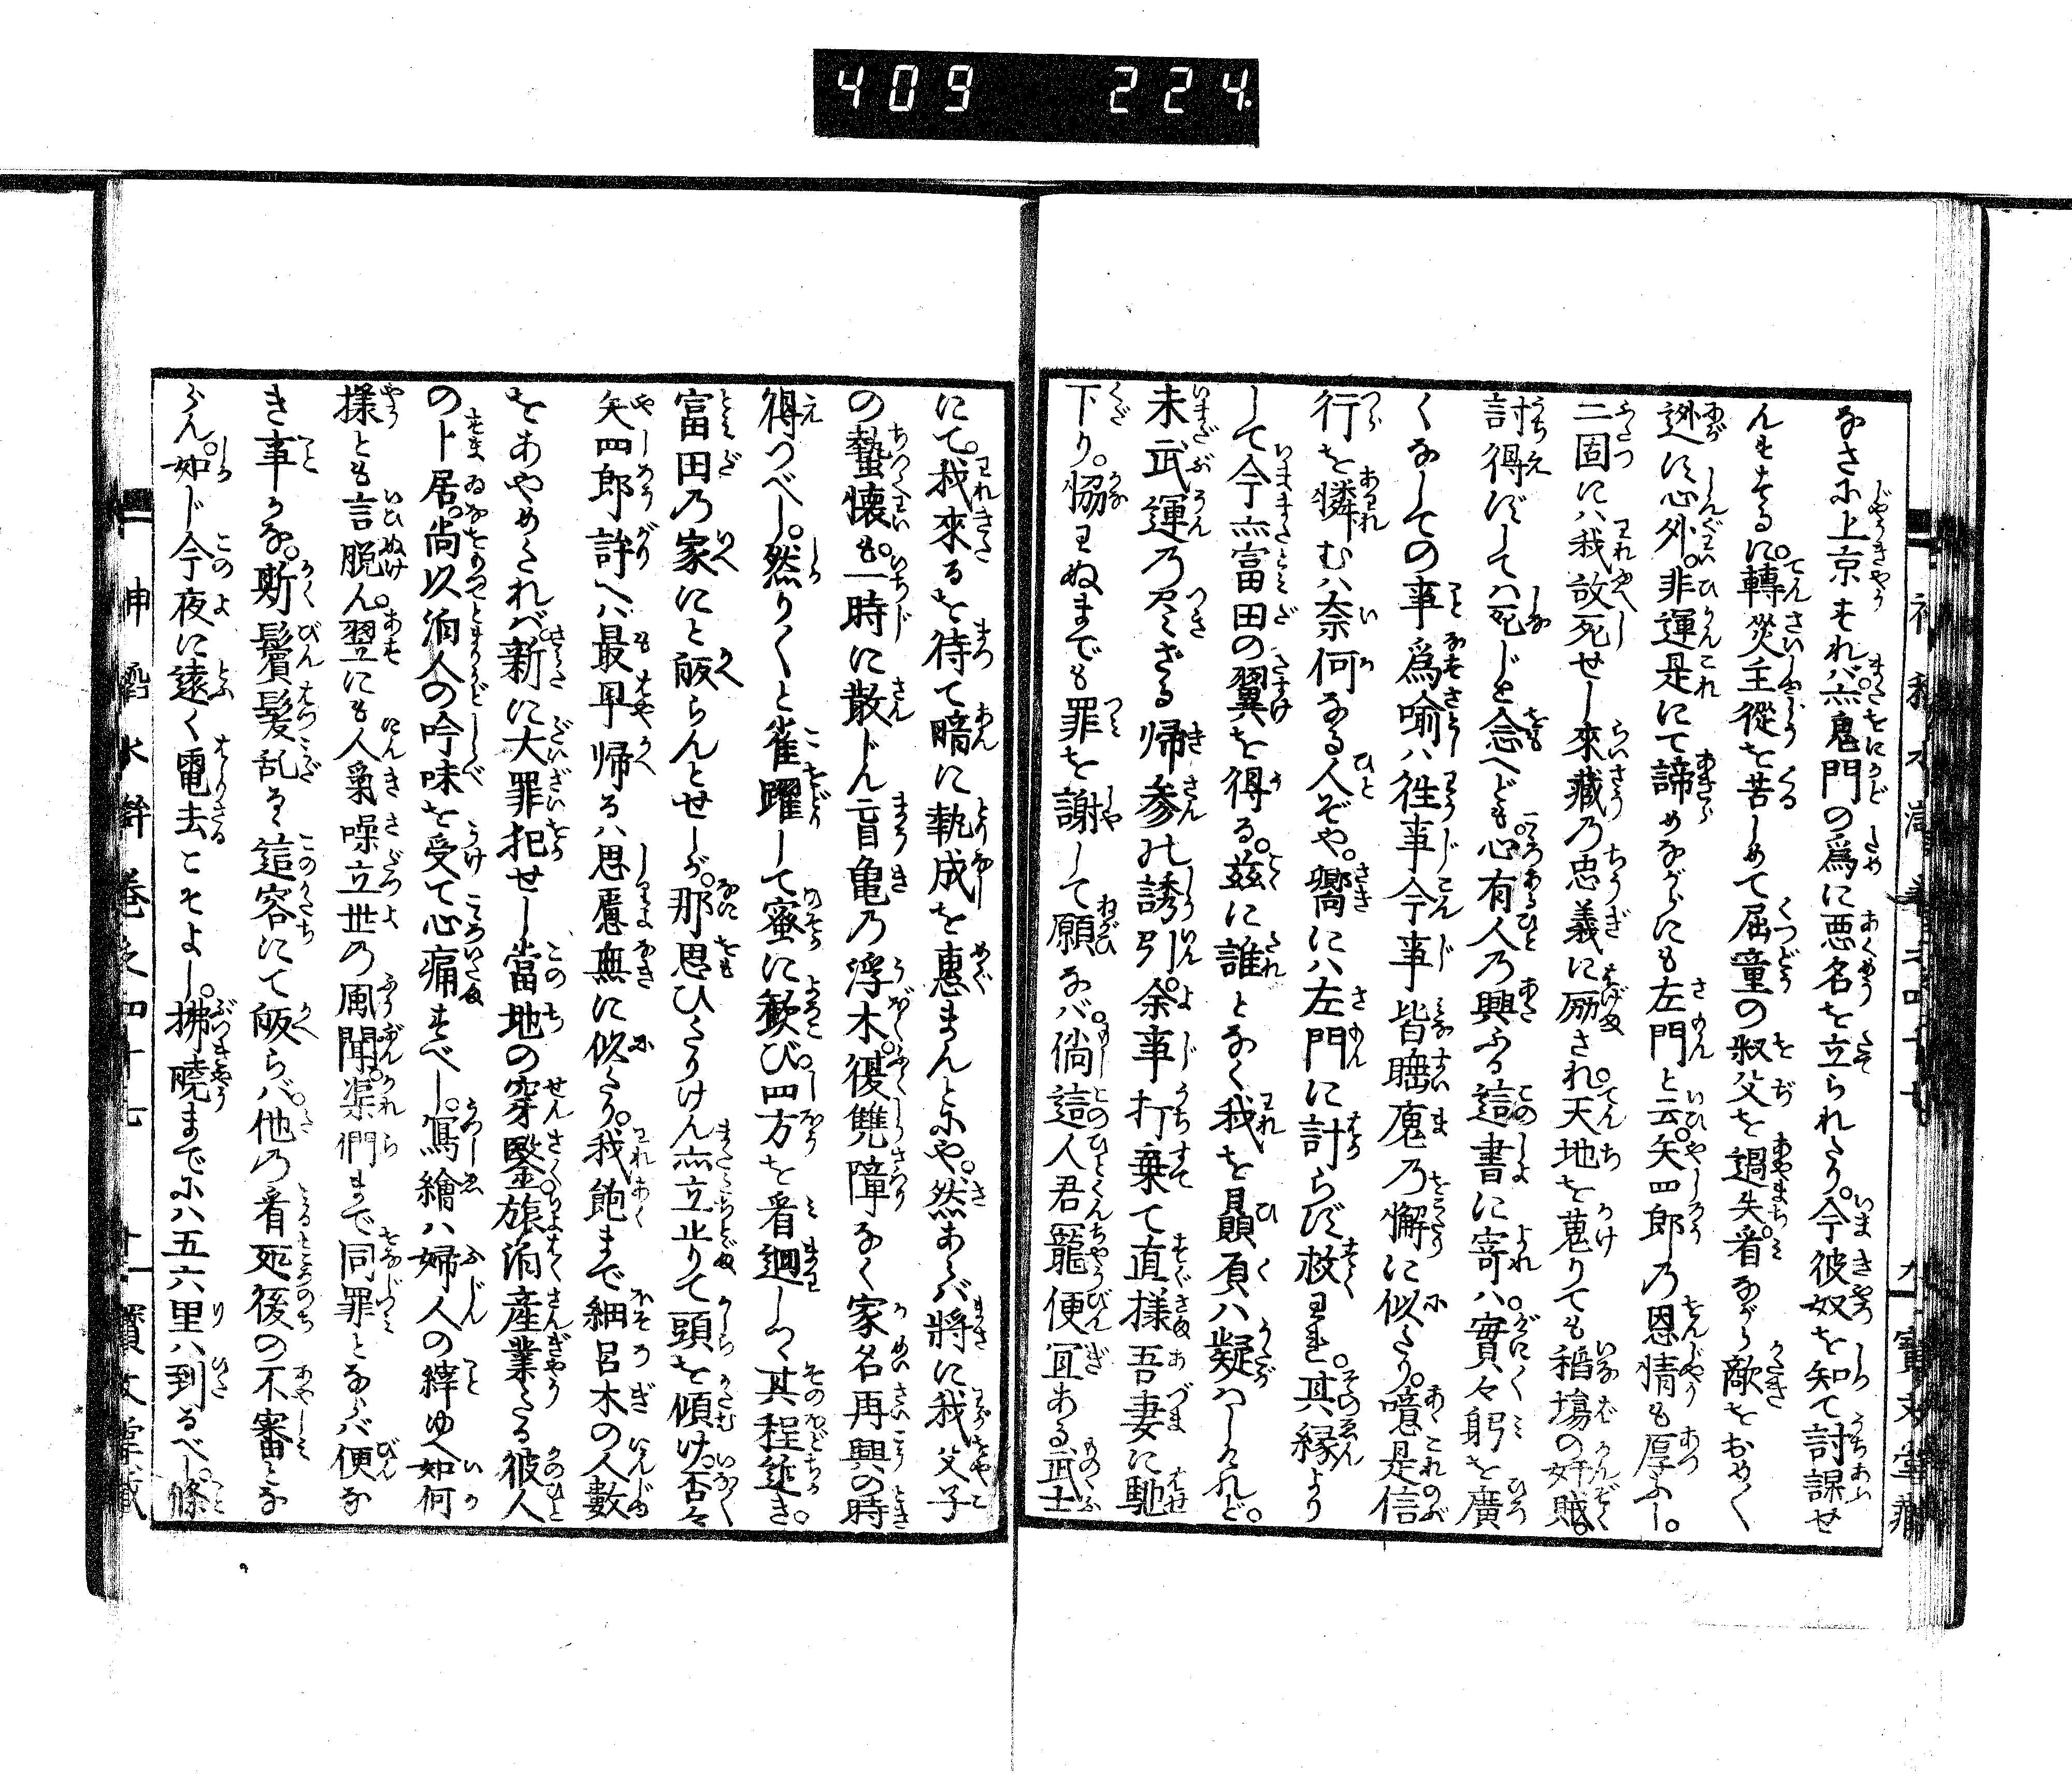 409 224.
なさに上京すれば亦鬼門の爲に悪名を立られたり。今彼奴を知て討謀せ
んとするに。轉災主從を苦しめて屈童の叔父を過失。看ながら敵をおめく
迯に心外。非運是にて諦めながらにも左門と云。矢四郎乃恩情も厚ふし。
二固に八我故死せし來藏乃忠義に励され。天地を蒐りても稲塲の奸賊。
討得ずしてハ死じと念へども。心有人乃興ふる這書に寄ハ。實々躬を廣
くなしての事爲喩ハ徃事今事皆睡魔乃懈に似たり。噫是信
行を憐むハ奈何なる人ぞや。嚮にハ左門に計らず救われ。其縁より
して今亦富田の翼を得る。茲に誰となく我を贔屓ハ疑ハしけれど。
未武運乃尽ざる帰参の誘引。余事打棄て直樣吾妻に馳
下り。恊わぬまでも罪を謝して願なバ。倘這人君寵便宜ある武士
にて。我來るを待て暗に執成を惠まんとにや。然あらバ將に我父子
の蟄懐も。一時に散じん盲亀乃浮木。復讐障なく家名再興の時
得つべし。然りくと雀躍して蜜に歓び。四方を看廻しつゝ其程近き。
富田乃家にと皈らんとせしが。那思ひたりけん亦立止りて頭を傾け。否々
矢四郎許へハ最早帰るハ思慮無に似たり。我飽まで細呂木の人數
をあやめたれバ。新に大罪犯せし當地の穿鑿。旅泊産業たる彼人
の卜居。尚以泊人の吟味を受て心痛すべし。寫繪ハ婦人の縡ゆへ如何
樣とも言脱ん。翌にも人氣噪立世の風聞。渠們まで同罪とならバ便な
き事かな。斯鬢髪乱るゝ這容にて皈らバ。他乃看死後の不審となら
なん。如じ今夜に遠く電去こそよし。拂曉までにハ五六里ハ到るべし。條
神 水 卷之四十七 十一 寶文堂藏